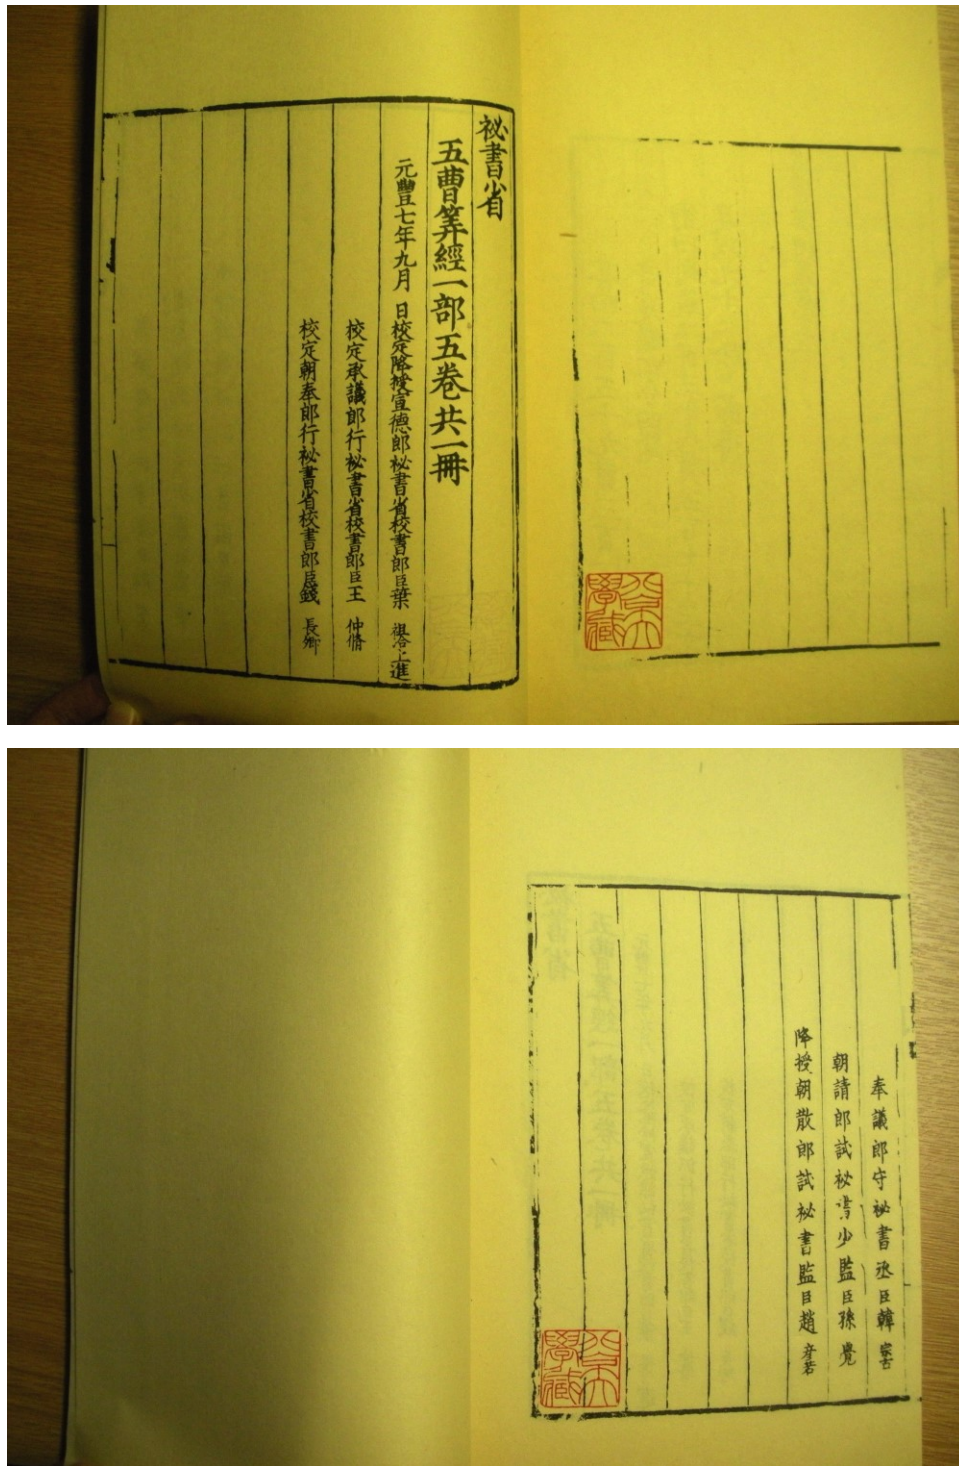 祕書省
五曹筭經一部五卷共一冊
元豐七年九月 日校定降授宣德郎祕書省校書郎臣葉 祖洽上進
校定承議郎行祕書省校書郎臣王 仲脩
校定朝奉郎行祕書省校書郎臣錢 長卿
奉議郎守祕書丞臣韓 宗古
朝請郎試祕書少監臣孫 覺
降授朝散郎試祕書監臣趙 彥若